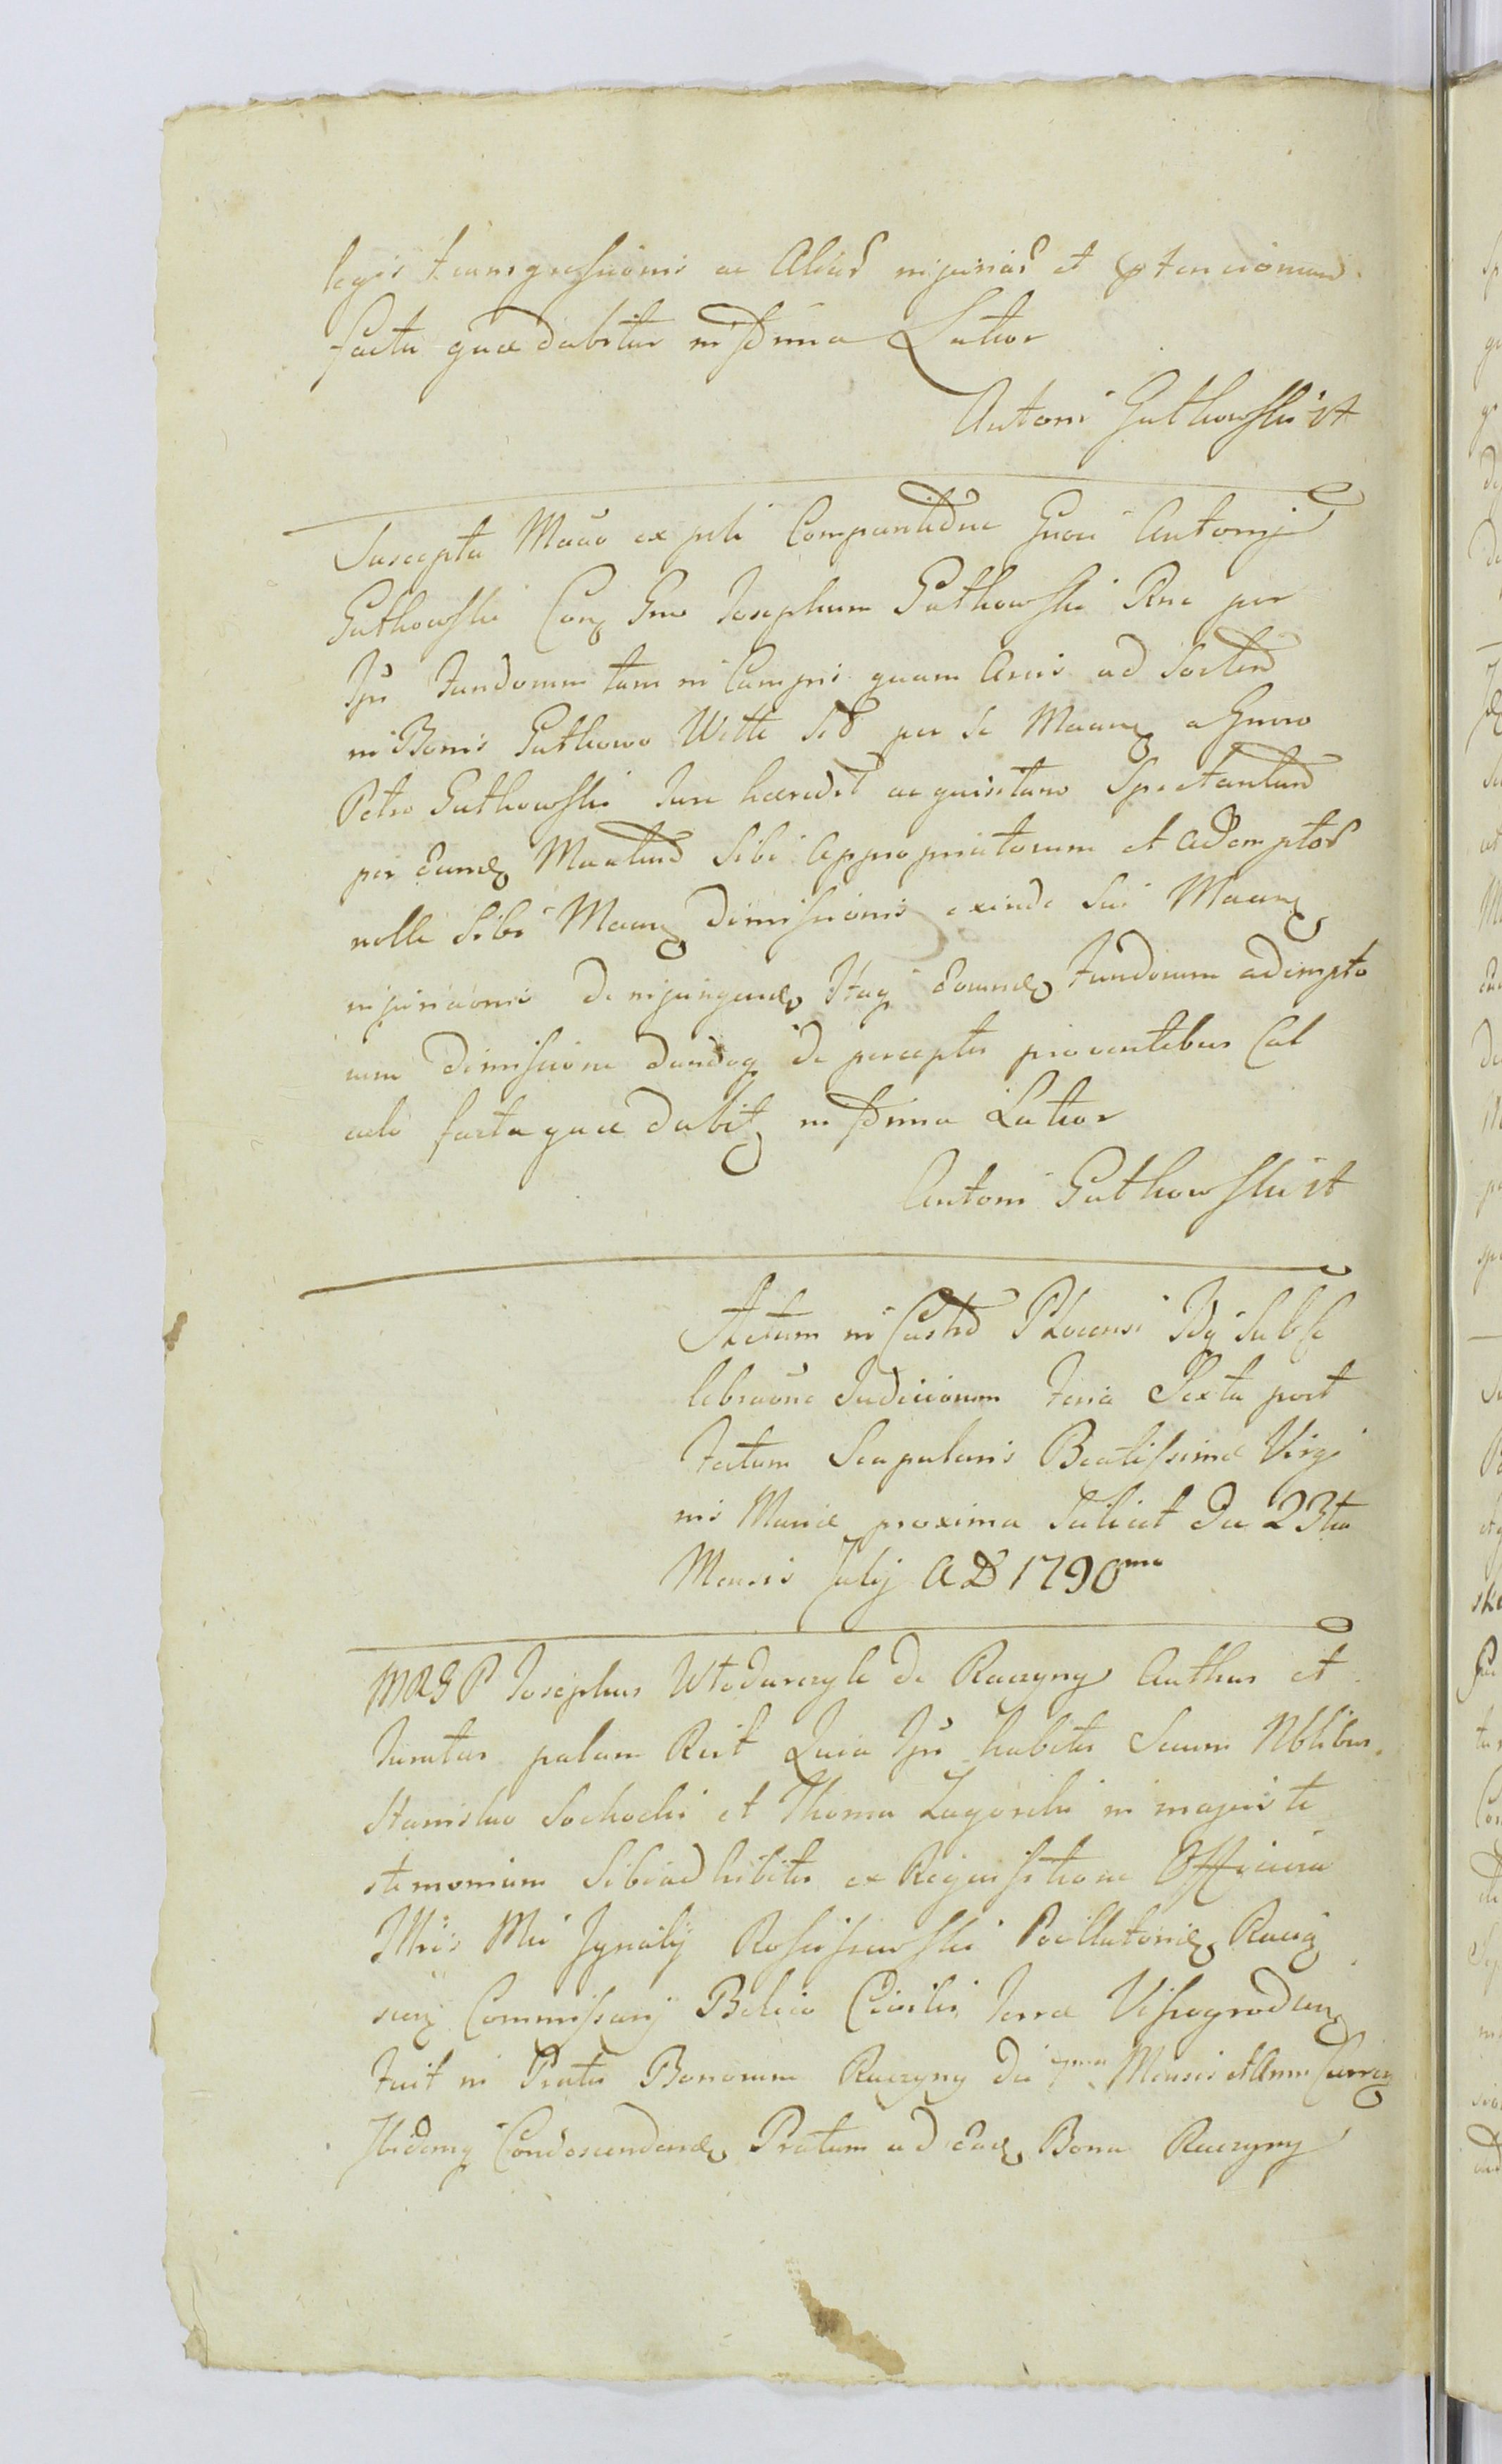 legis transgressionis ac aliar injuriar et ptensionum
facta quae dabitur in Pdima Latior
Antoni Gutkowski st
Suscepta Mãao ex psti Comparitiõne Gnosi Antonij
Gutkowski Conq Gno Josephum Gutkowski Rne per
Ips Fundorum tam in Campis quam Areis ad Sortem
in Bonis Gutkowo Witki Sed per se Maanq a Gnoso
Petro Gutkowski Jure haeredit acquisitam Spectantium
per Eundq Maatum Sibi appropriatorum et ademptor
nolle Sibi Maanq dimissionis exinde Sui Maanq
injuriãonis De injungendq Itaq Eorundq Fundorum adempto
rum dimissione dandoq de perceptis proventibus Cal
culo facta quae dabitq in Pdima Latior
Antoni Gutkowski st
Actum in Castro Plocensi Ipq Sub Ce
lebraõne Judiciorum Feria Sexta post
Festum Scapularis Beatissimae Virgi
nis Mariae proxima Scilicet die 23tia
Mensis Julij AD 1790mo
MRGP Josephus Włodarczyk de Raczyny Authus et
Juratus palam Rcit Quia Ips habitis Secum Nbilibus
Stanislao Sochocki et Thoma Zagorski in majus te
stimonium Sibi adhibitis ex Requisitione Officiosa
Mfcis Mci Ignatij Rosciszewski Pocillatoridq Raciąq
senq Commissarij Bellico Civilis Terrae Vissogrodienq
Fuit in Pratis Bonorum Raczyny die 7ma Mensis et Anni Currenq
Ibidemq Condescendendq Pratum ad Eadq Bona Raczyny